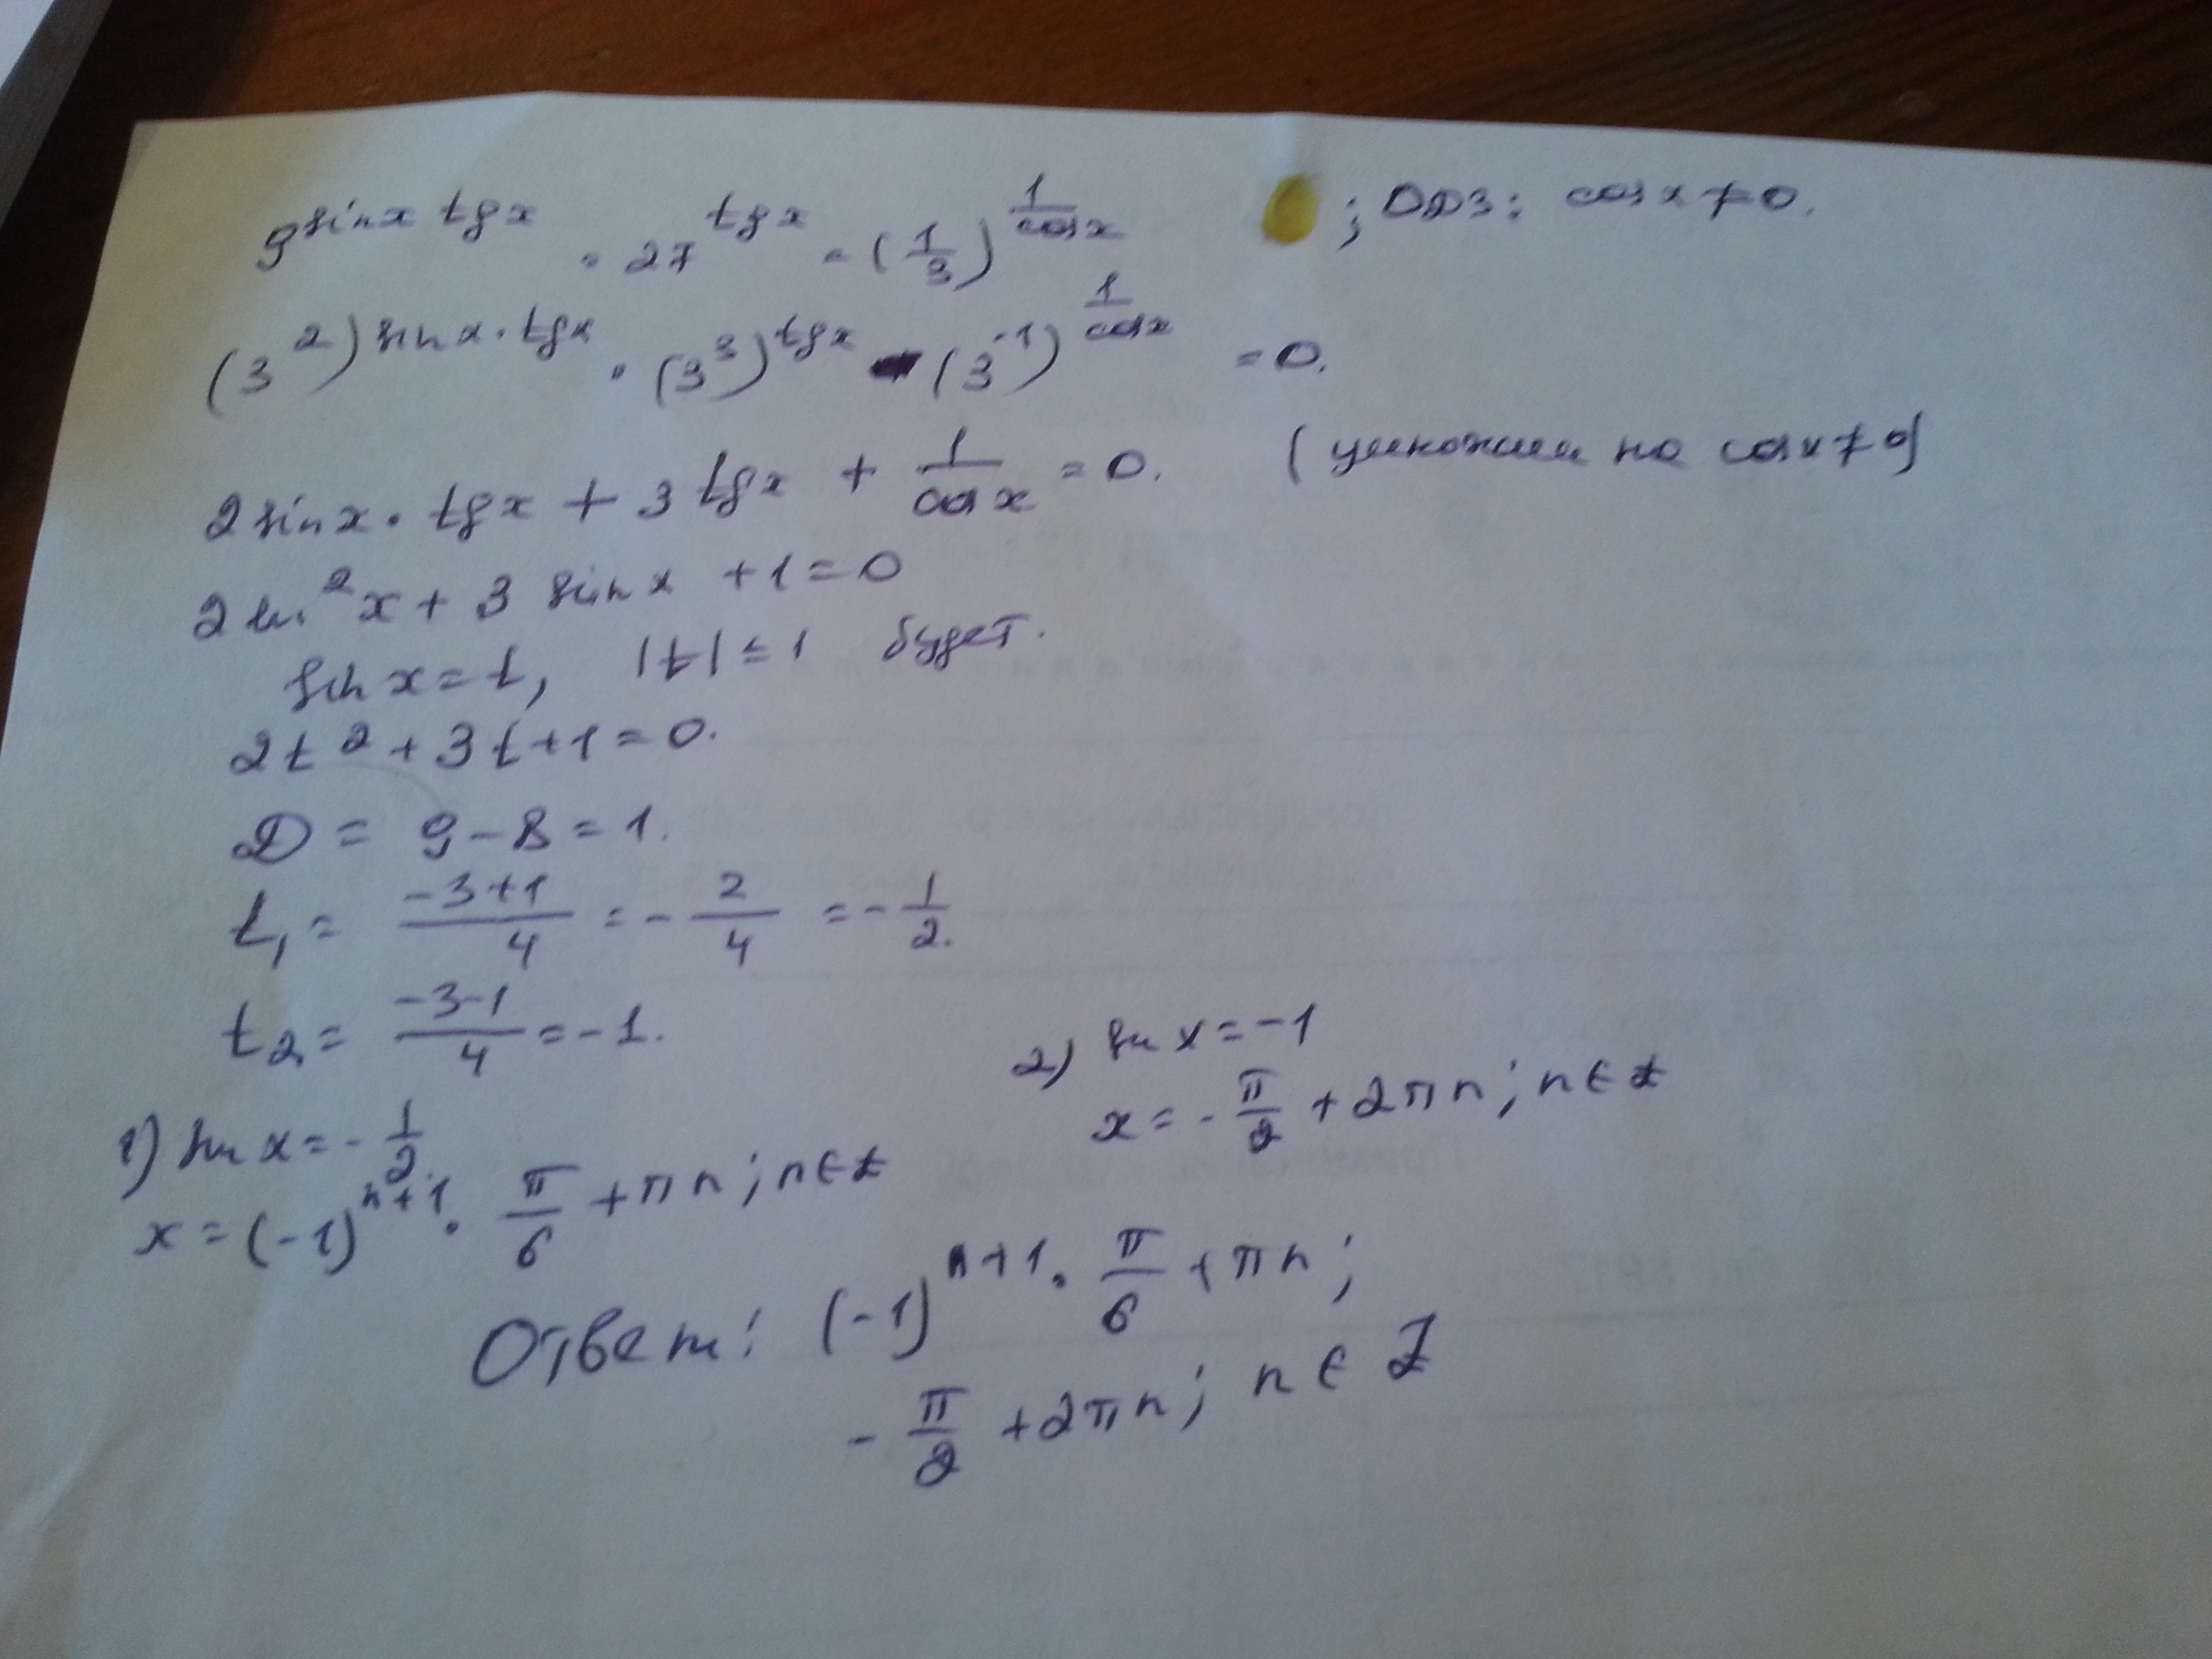 9^(sin x tg x) · 27^(tg x) = (1/3)^(1/cos x) ; ОДЗ: cos x ≠ 0.
(3^2)^(sin x · tg x) · (3^3)^(tg x) - (3^-1)^(1/cos x) = 0.
2 sin x · tg x + 3 tg x + 1/cos x = 0. (умножим на cos x ≠ 0)
2 sin^2 x + 3 sin x + 1 = 0
sin x = t, |t| ≤ 1 будет.
2t^2 + 3t + 1 = 0.
D = 9 - 8 = 1.
t1 = (-3+1)/4 = - 2/4 = - 1/2.
t2 = (-3-1)/4 = -1.
1) sin x = - 1/2
x = (-1)^(n+1) · π/6 + πn ; n ∈ Z
2) sin x = -1
x = - π/2 + 2πn ; n ∈ Z
Ответ: (-1)^(n+1) · π/6 + πn ;
- π/2 + 2πn ; n ∈ Z